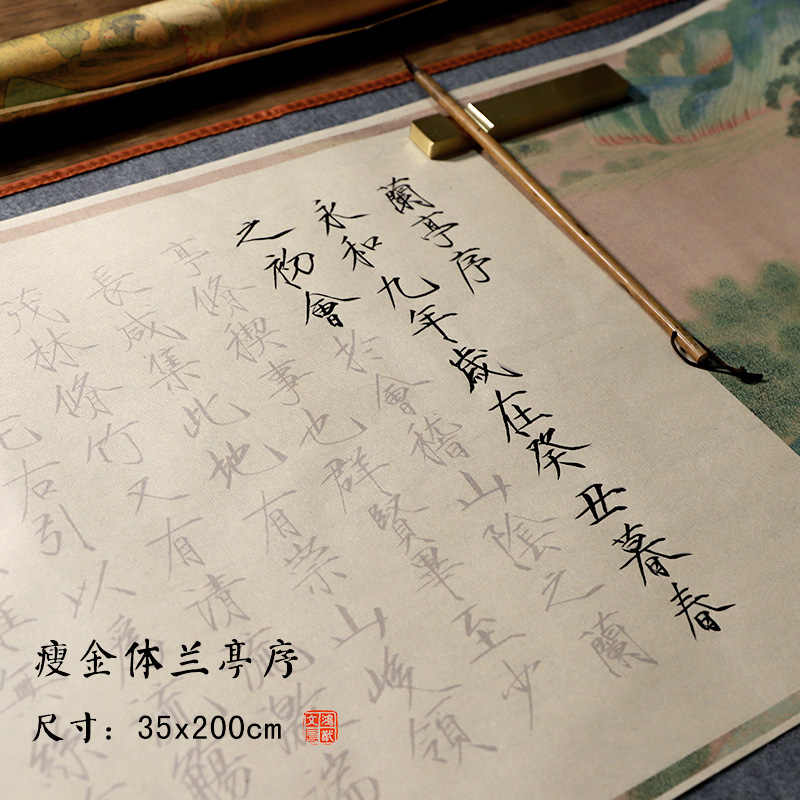 蘭亭序
永和九年歲在癸丑暮春
之初會於會稽山陰之蘭
亭脩稧事也群賢畢至少
長咸集此地有崇山峻領
茂林脩竹又有清流激湍
右引以為流觴
瘦金体兰亭序
尺寸：35x200cm